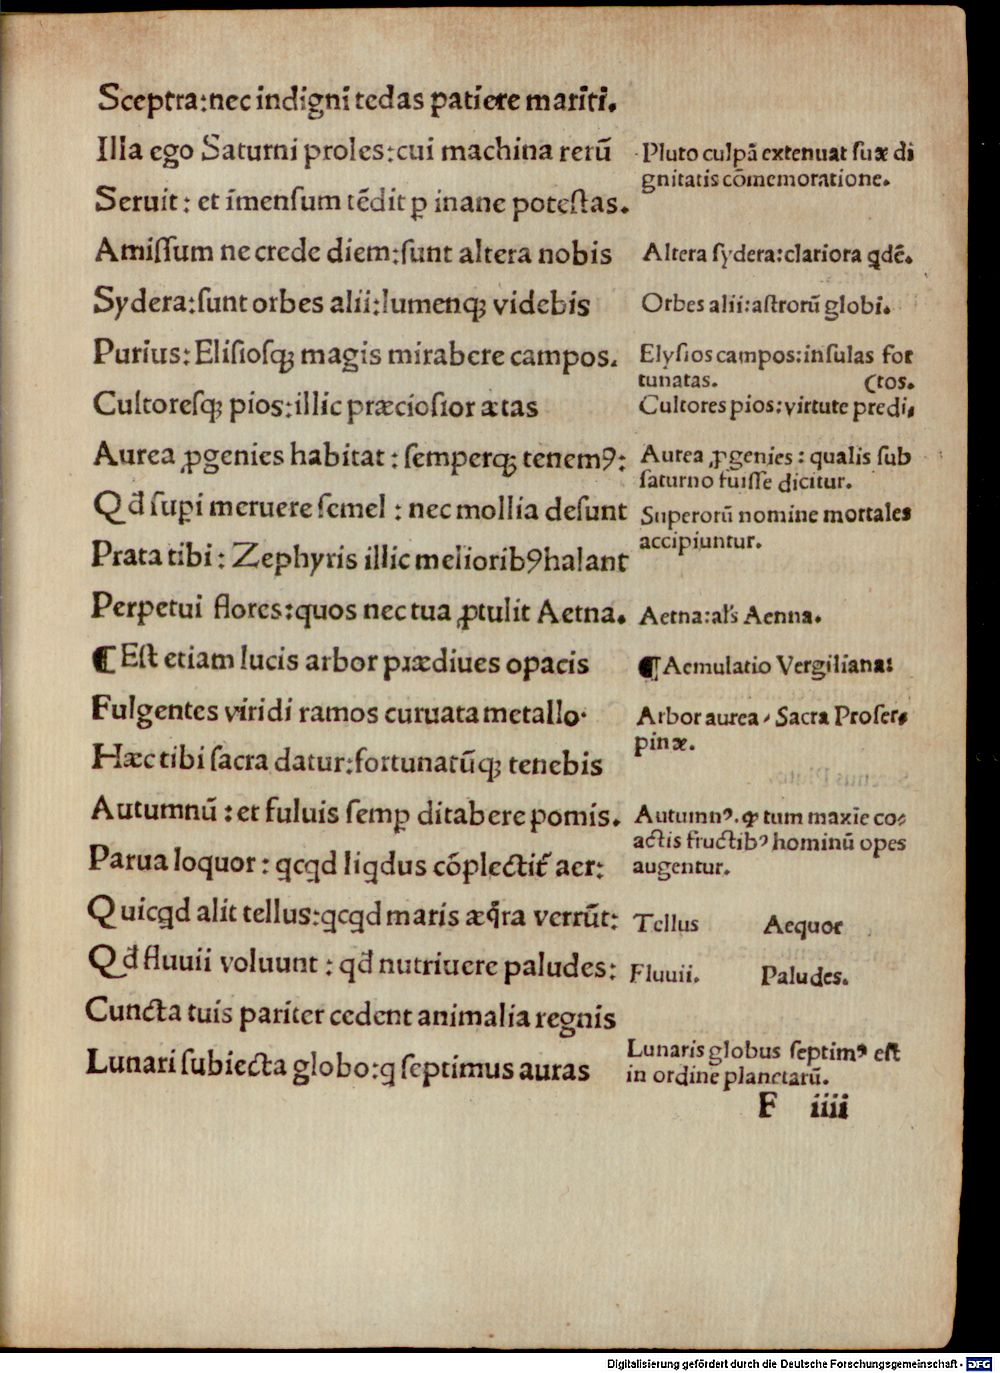 Sceptra:nec indigni tedas patiere mariti.
Illa ego Saturni proles:cui machina rerū
Seruit: et īmensum tēdit ꝑ inane potestas.
Amiſſum ne crede diem:ſunt altera nobis
Sydera:ſunt orbes alii:lumenqꝫ videbis
Purius:Eliſioſqꝫ magis mirabere campos.
Cultoreſqꝫ pios:illic præcioſior ætas
Aurea ꝓgenies habitat: ſemperqꝫ tenemꝰ:
Qd̄ ſuꝑi meruere ſemel: nec mollia deſunt
Prata tibi: Zephyris illic melioribꝰ halant
Perpetui flores:quos nec tua ꝓtulit Aetna.
¶ Eſt etiam lucis arbor prædiues opacis
Fulgentes viridi ramos curuata metallo.
Hæc tibi ſacra datur:fortunatūqꝫ tenebis
Autumnū: et fuluis ſemꝑ ditabere pomis.
Parua loquor: qcqd liqdus cōplectit᷑ aer:
Quicqd alit tellus:qcqd maris æqͣra verrūt:
Qd̄ fluuii voluunt: qd̄ nutriuere paludes:
Cuncta tuis pariter cedent animalia regnis
Lunari ſubiecta globo:q ſeptimus auras
Pluto culpā extenuat ſuæ di
gnitatis cōmemoratione.
Altera ſydera:clariora qdē.
Orbes alii:aſtrorū globi.
Elyſios campos:inſulas for
tunatas. (tos.
Cultores pios:virtute predi,
Aurea ꝓgenies: qualis ſub
ſaturno fuiſſe dicitur.
Superorū nomine mortales
accipiuntur.
Aetna:al's Aenna.
¶ Aemulatio Vergiliana:
Arbor aurea. Sacra Proſer,
pinæ.
Autumnꝰ. ꝙ tum maxīe co,
actis fructibꝰ hominū opes
augentur.
Tellus Aequor
Fluuii. Paludes.
Lunaris globus ſeptimꝰ eſt
in ordine planetarū.
F iiii
Digitalisierung gefördert durch die Deutsche Forschungsgemeinschaft - DFG